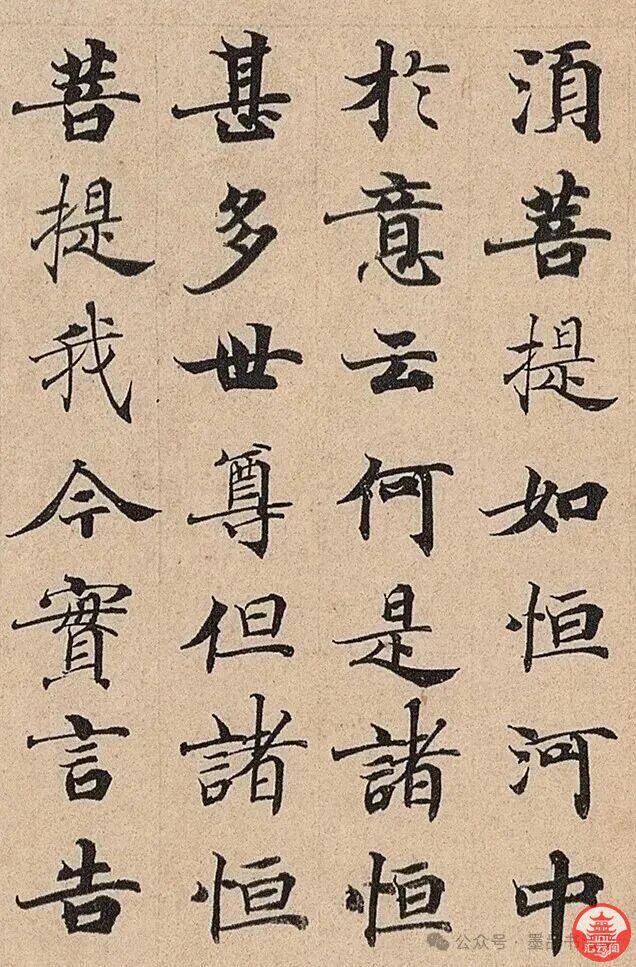 湏菩提如恒河中
於意云何是諸恒
甚多世尊但諸恒
菩提我今實言告
公众号·墨品书
汇云阁